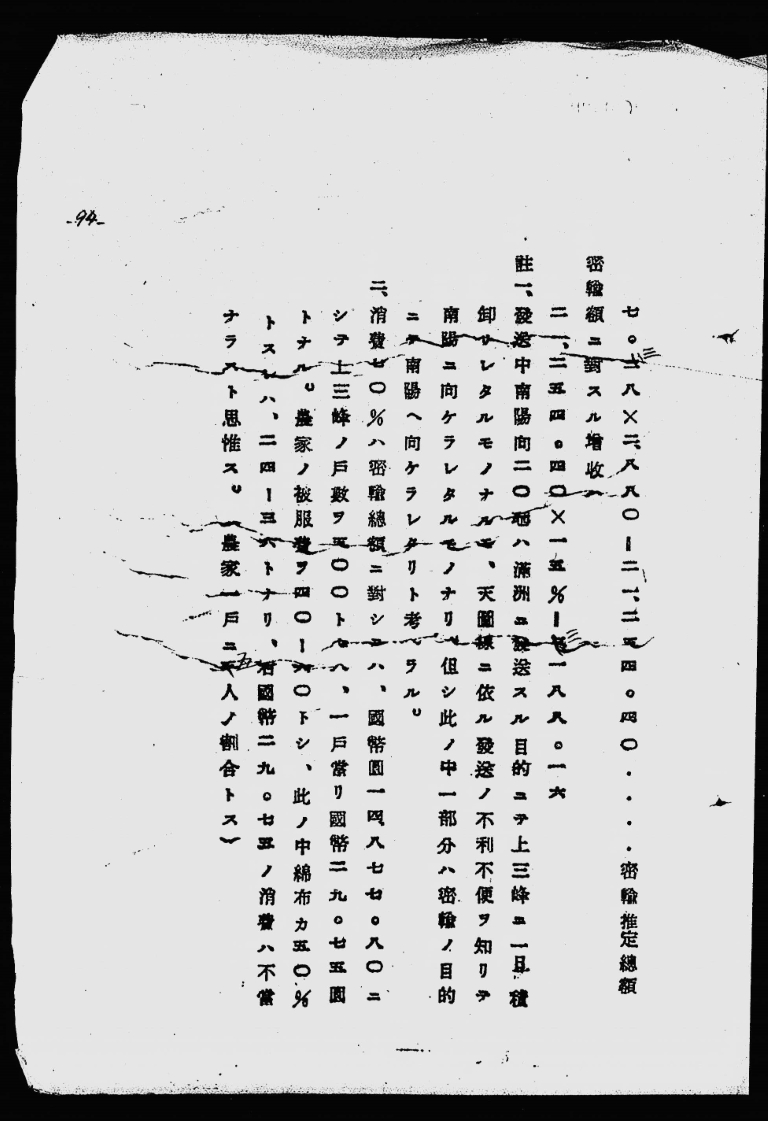 七。三八×二、八八〇ー二一、二五四。四〇・・・・密輸推定總額
密輸額ニ對スル增收ハ
二一、二五四。四〇×一五%ー三、一八八。一六
註一、發送中南陽向二〇瓲ハ滿洲ニ發送スル目的ニテ上三峰ニ一旦積
卸サレタルモノナルモ、天圖線ニ依ル發送ノ不利不便ヲ知リテ
南陽ニ向ケラレタルモノナリ。但シ此ノ中一部分ハ密輸ノ目的
ニテ南陽ヘ向ケラレタリト考ヘラル。
二、消費七〇%ハ密輸總額ニ對シテハ、國幣圓一四、八七七。八〇ニ
シテ上三峰ノ戶數ヲ五〇〇トセハ、一戶當リ國幣二九。七五圓
トナル。農家ノ被服費ヲ四〇ー六〇トシ、此ノ中綿布カ五〇%
トスレハ、二四ー三六トナリ、右國幣二九。七五ノ消費ハ不當
ナラスト思惟ス。(農家一戶ニ五人ノ割合トス)
-94-